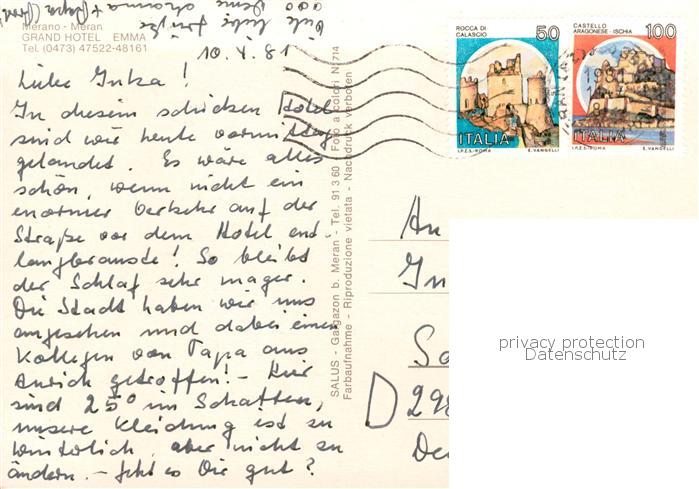 Merano - Meran
GRAND HOTEL EMMA
Tel. (0473) 47522-48161
10. X. 81
Liebe Inka!
In diesem schicken Hotel
sind wir heute vormittag
gelandet. Es wäre alles
schön, wenn nicht ein
enormer Verkehr auf der
Straße vor dem Hotel ent-
langbrauste! So bleibt
der Schlaf sehr mager.
Die Stadt haben wir uns
angesehen und dabei einen
Kollegen von Papa aus
Aurich getroffen! - Hier
sind 25° im Schatten,
unsere Kleidung ist zu
winterlich, aber nicht zu
ändern. - Geht es Dir gut?
Alle liebe Grüße
Deine Mama + Papa
SALUS - Gargazon b. Meran - Tel. 91 3 60 - Foto a colori: N. 714
Farbaufnahme - Riproduzione vietata - Nachdruck verboten
ROCCA DI
CALASCIO
50
ITALIA
I.P.Z.S.-ROMA E. VANGELLI
CASTELLO
ARAGONESE - ISCHIA
100
ITALIA
I.P.Z.S.-ROMA E. VANGELLI
An
In
D 298
privacy protection
Datenschutz